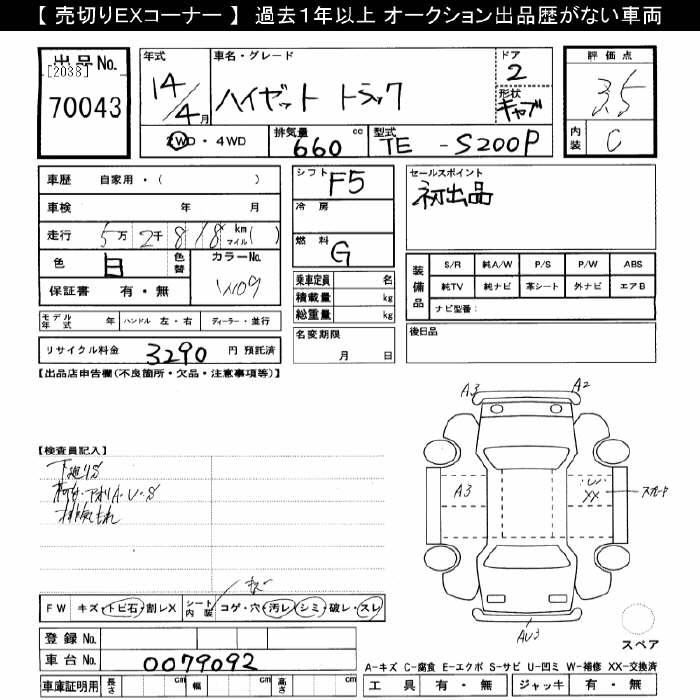 【 売切りEXコーナー 】 過去１年以上 オークション出品歴がない車両
出品No. [2038] 70043
年式 14/4月
車名・グレード ハイゼット トラック
ドア 2
形状 キャブ
評価点 3.5
内装 C
2WD・4WD
排気量 660 cc
型式 TE -S200P
車歴 自家用・( )
車検 年 月
走行 5万 2千 818 km マイル ( )
色 白 色替
カラーNo. W09
保証書 有・無
シフト F5
冷房
燃料 G
乗車定員 名
積載量 kg
総重量 kg
セールスポイント
初出品
装備品 S/R 純A/W P/S P/W ABS
純TV 純ナビ 革シート 外ナビ エアB
ナビ型番：
モデル年式 年 ハンドル 左・右 ディーラー・並行
名変期限 月 日
後日品
リサイクル料金 3290 円 預託済
【出品店申告欄(不良箇所・欠品・注意事項等)】
A3 A2
【検査員記入】
下廻りS
荷台・アオリA・U・S
排気もれ
A3
U
XX スポード
FW キズ・トビ石・割レX
シート内装 コゲ・穴・汚レ・シミ・破レ・スレ
キズ
AU3
スペア
登録No.
車台No. 0079092
A-キズ C-腐食 E-エクボ S-サビ U-凹ミ W-補修 XX-交換済
車庫証明用 長さ cm 幅 cm 高さ cm
工具 有・無 ジャッキ 有・無